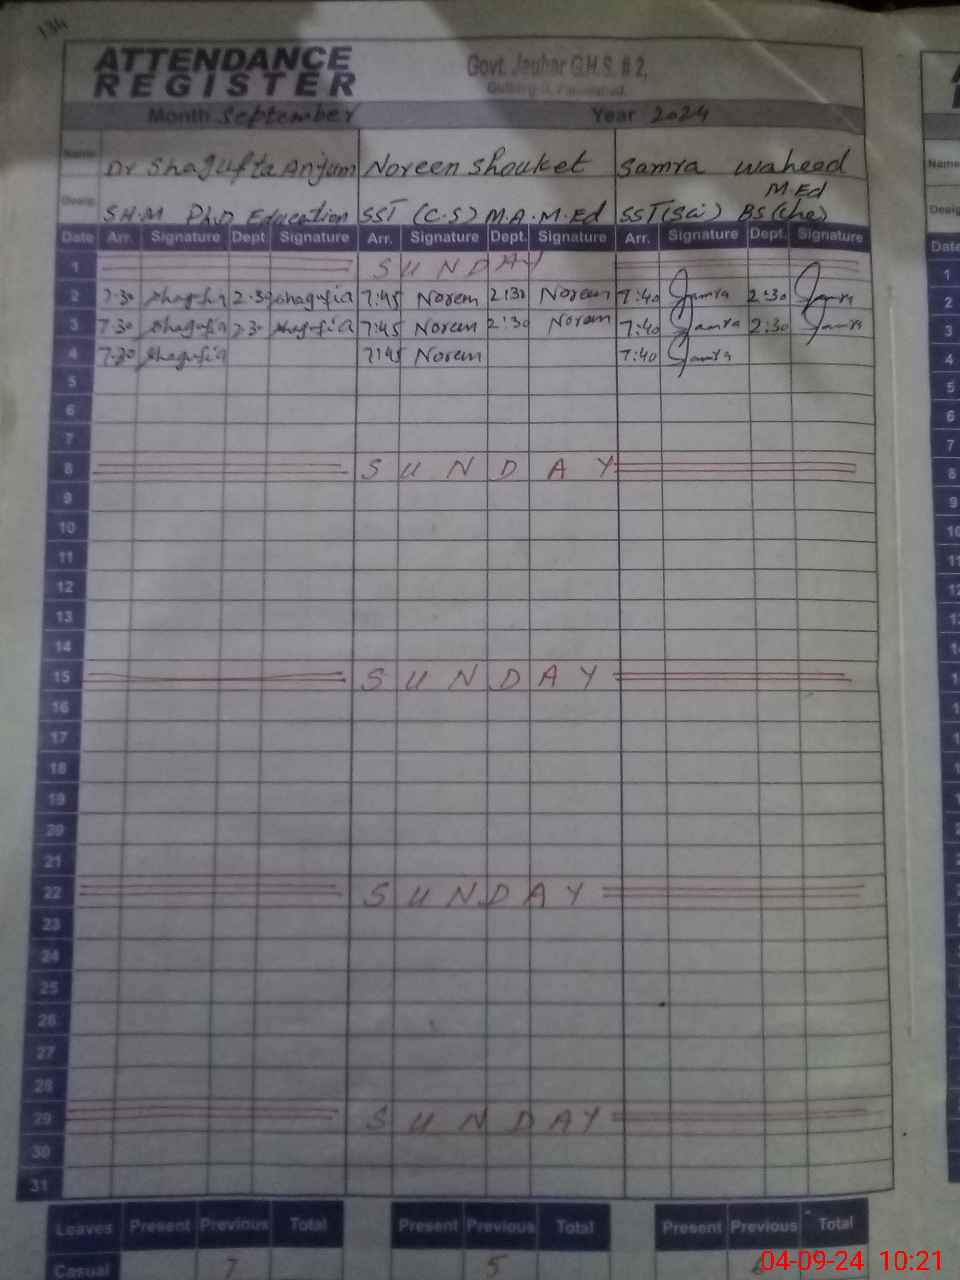 134
ATTENDANCE
REGISTER
Govt. Jauhar G.H.S. # 2,
Month September Year 2024
Name Dr Shagufta Anjum Noreen Shouket Samra Waheed
M.Ed
Desig. S.H.M Ph.D Education SST (C.S) M.A. M.Ed SST(Sci) BS(Che)
Date Arr. Signature Dept. Signature Arr. Signature Dept. Signature Arr. Signature Dept. Signature
1 SUNDAY
2 7:30 Shagufta 2:30 Shagufta 7:45 Noreen 2:30 Noreen 7:40 Samra 2:30 Samra
3 7:30 Shagufta 2:30 Shagufta 7:45 Noreen 2:30 Noreen 7:40 Samra 2:30 Samra
4 7:30 Shagufta 7:45 Noreen 7:40 Samra
5
6
7
8 SUNDAY
9
10
11
12
13
14
15 SUNDAY
16
17
18
19
20
21
22 SUNDAY
23
24
25
26
27
28
29 SUNDAY
30
31
Leaves Present Previous Total Present Previous Total Present Previous Total
Casual 7 5
04-09-24 10:21
Name
Desig
Date
1
2
3
4
5
6
7
8
9
10
11
12
13